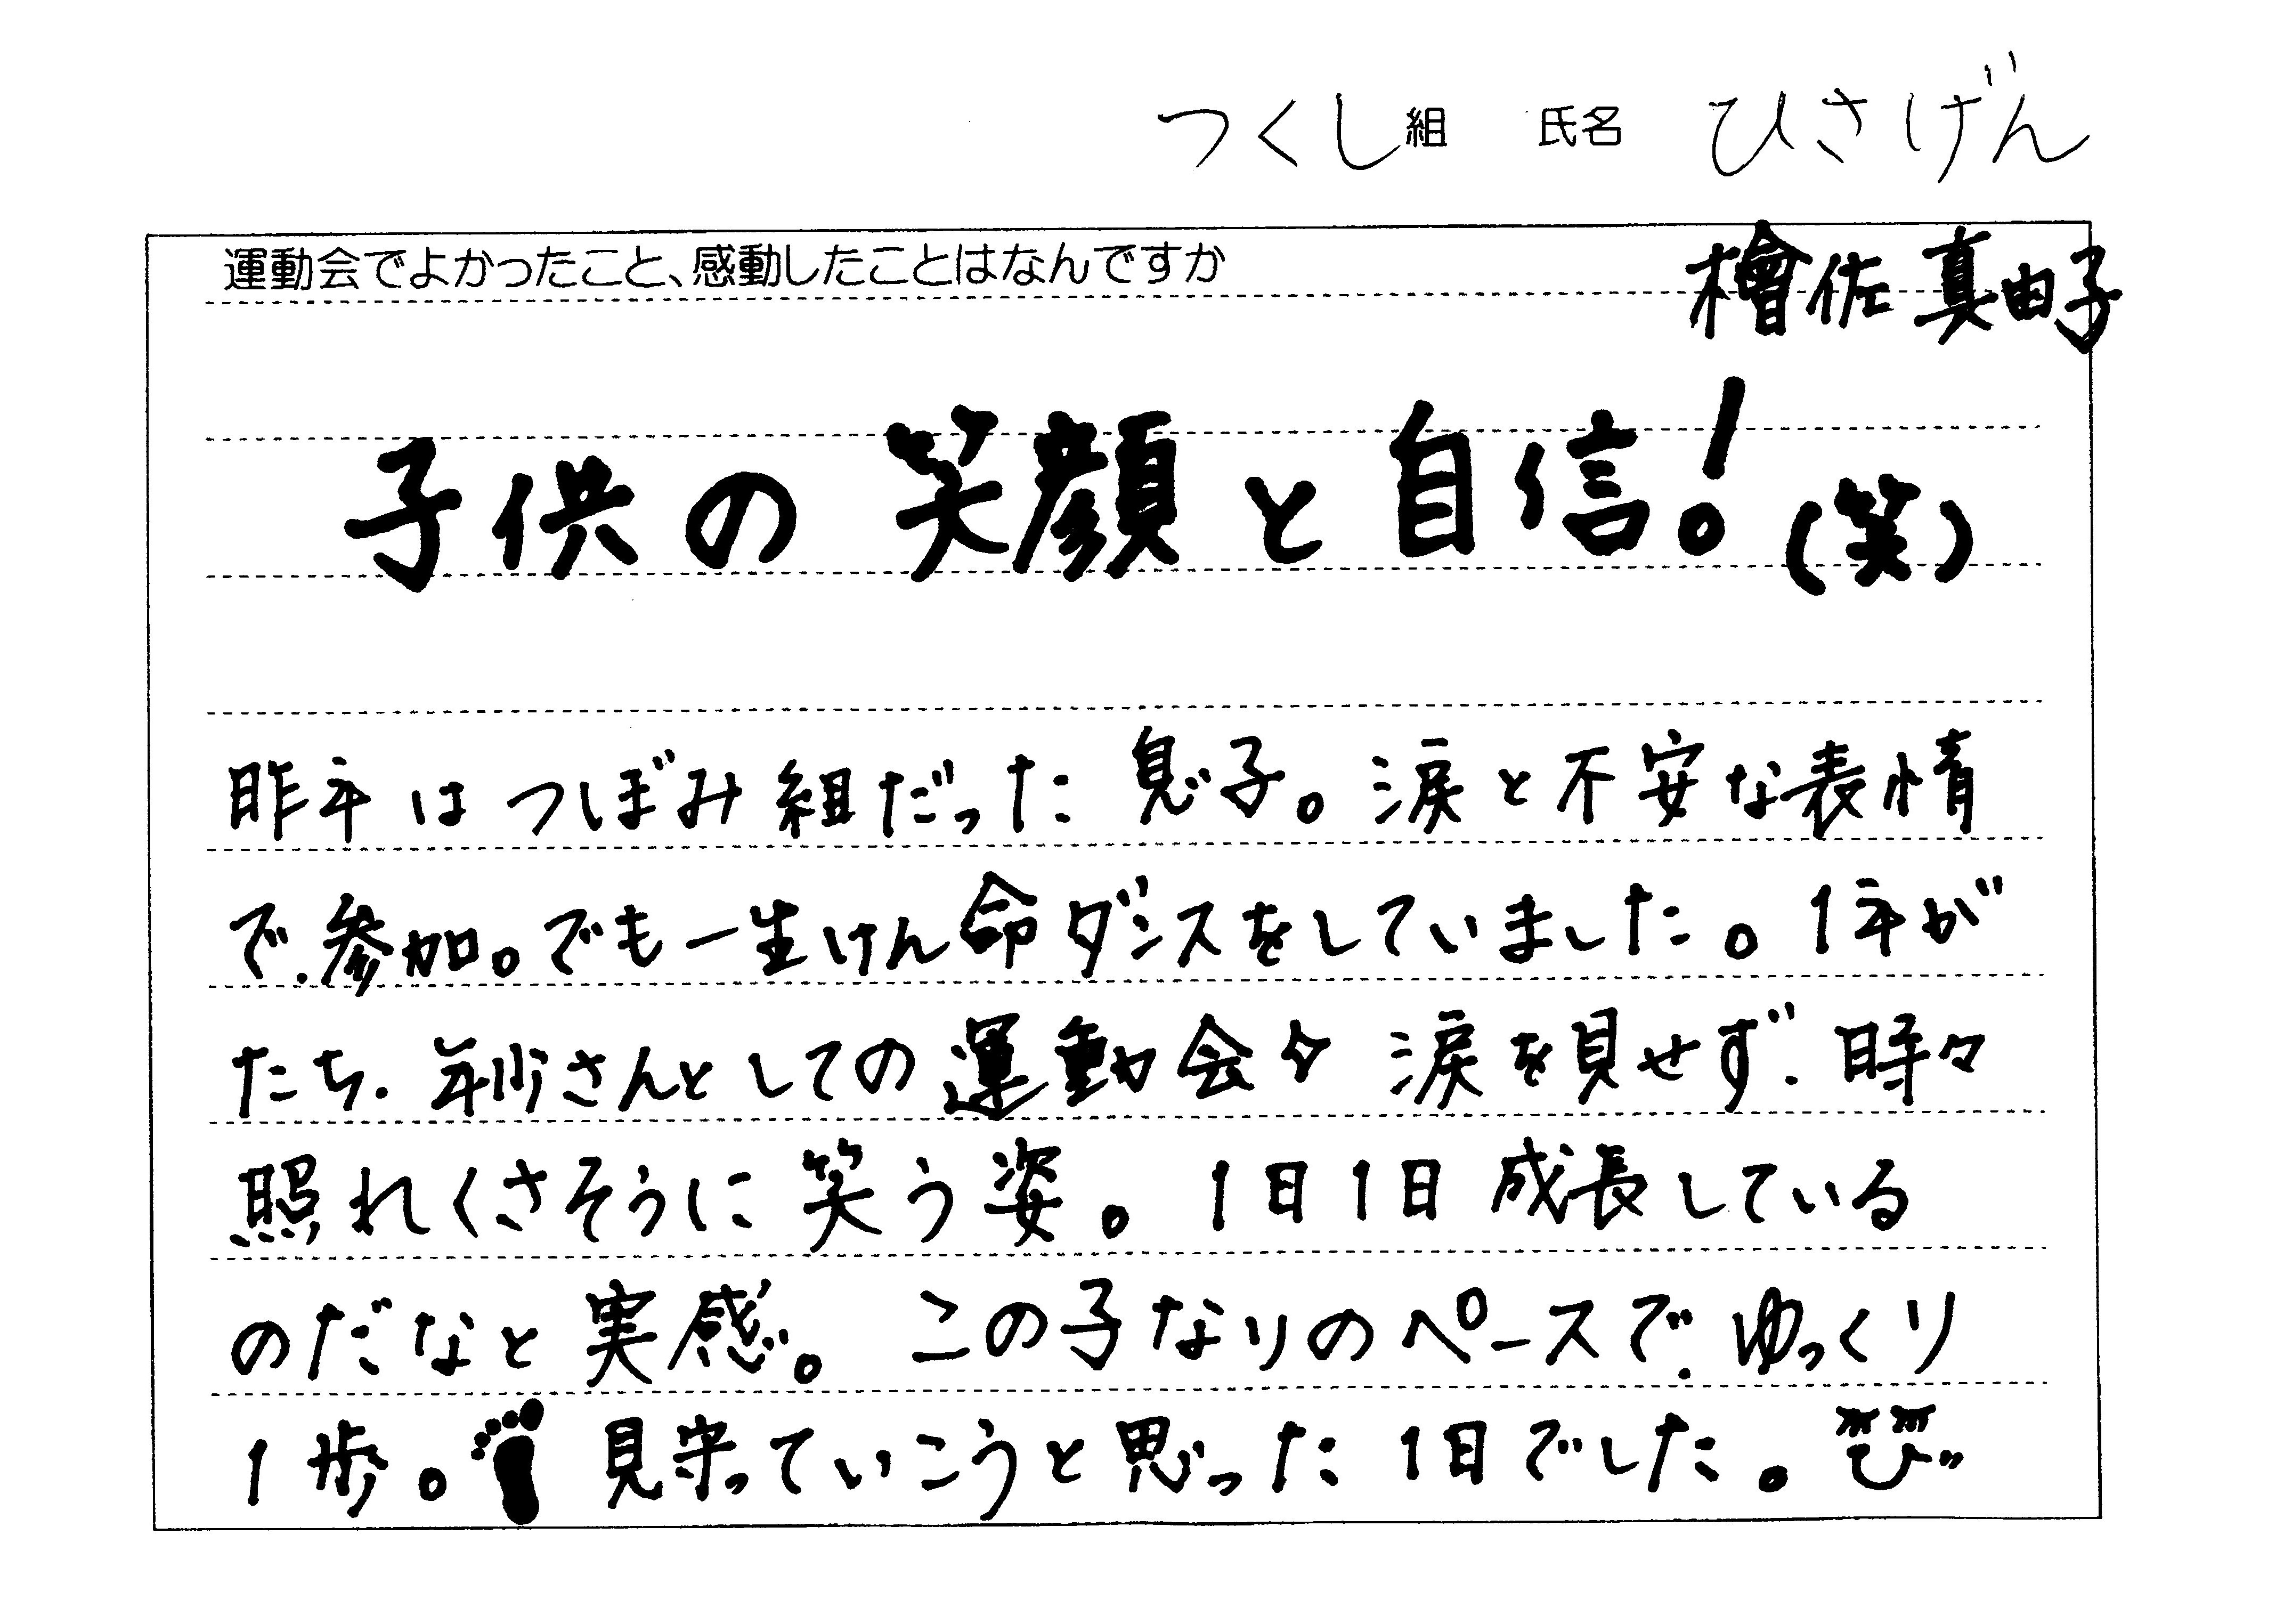 つくし組 氏名 ひさげん
運動会でよかったこと、感動したことはなんですか
檜佐 真由子
子供の笑顔と自信!(笑)
昨年はつぼみ組だった息子。涙と不安な表情
で.参加。でも一生けん命ダンスをしていました。1年が
たち.年少さんとしての運動会 涙を見せず.時々
照れくさそうに笑う姿。1日1日成長している
のだなと実感。この子なりのペースで.ゆっくり
1歩。見守っていこうと思った1日でした。